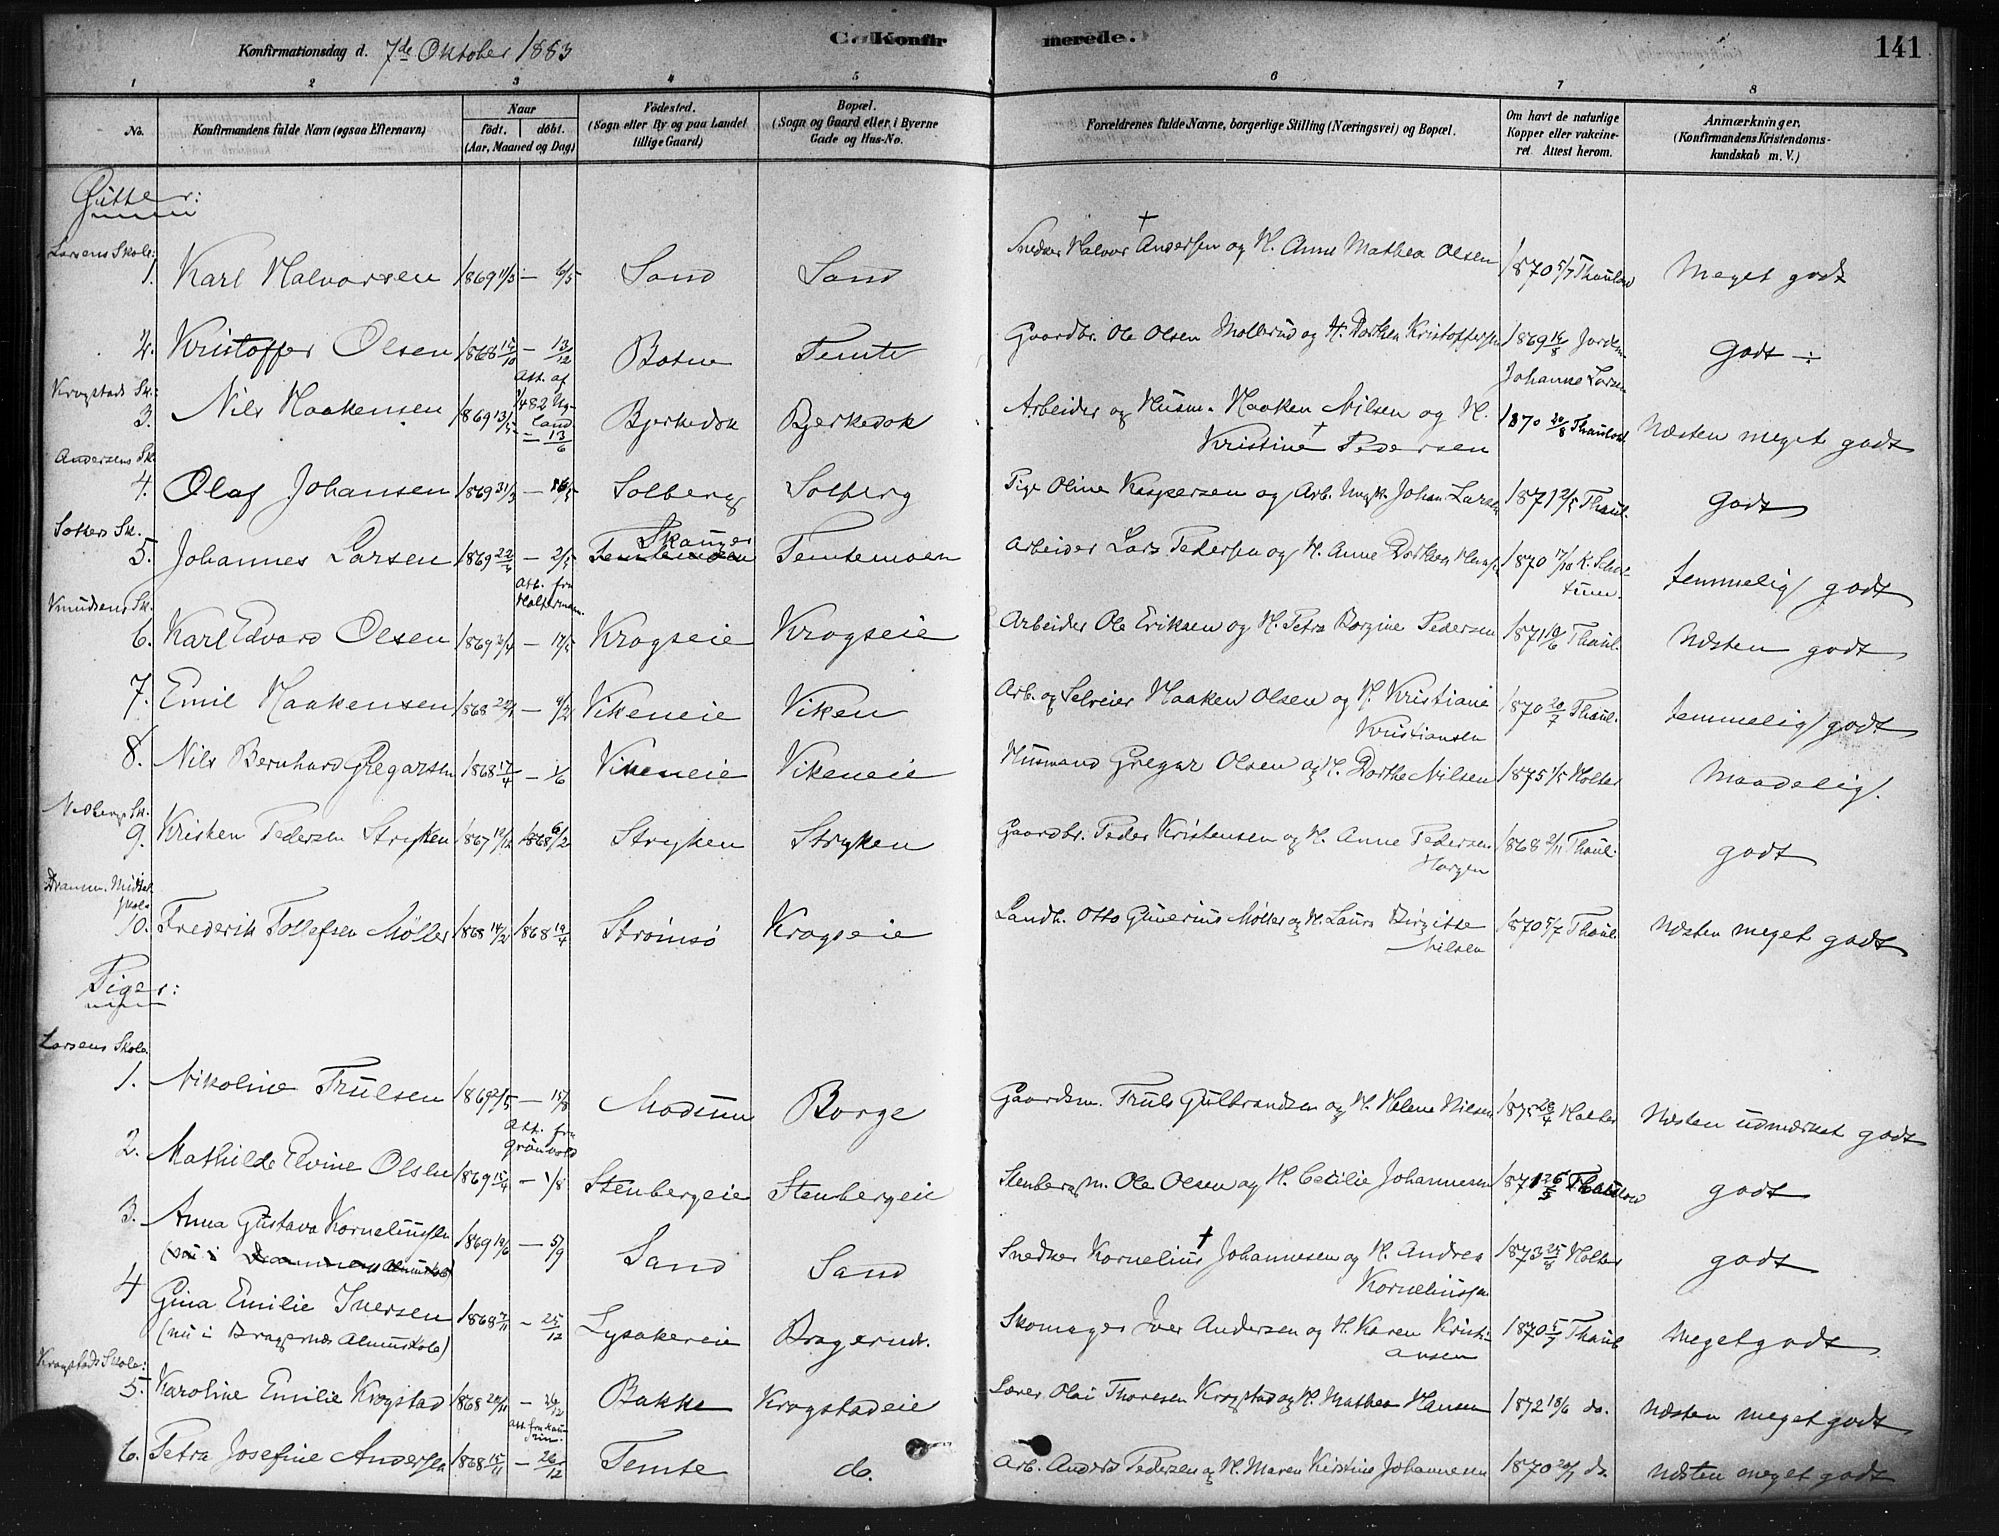 Konfirmationsdag d. 7de Oktober 1883
Konfir
merede.
141
1 2 3 4 5 6 7 8
No.
Konfirmandens fulde Navn (ogsaa Efternavn)
Naar
født. døbt.
(Aar, Maaned og Dag)
Fødested.
(Sogn eller By og paa Landet
tillige Gaard)
Bopæl.
(Sogn og Gaard eller i Byerne
Gade og Hus-No.
Forældrenes fulde Navne, borgerlige Stilling (Næringsvei) og Bopæl.
Om havt de naturlige
Kopper eller vakcine-
ret. Attest herom.
Anmærkninger,
(Konfirmandens Kristendoms-
kundskab m. V.)
Gutter:
Larsens Skole:
1. Karl Halvorsen 1869 11/3 — 6/5 Sand Sand Snedker Halvor † Andersen og H. Anne Mathea Olsen 1870 5/7 Thaulow Meget godt
2. Kristoffer Olsen 1868 15/10 — 13/12 Botne Temte Gaardbr. Ole Olsen og H. Dorthea Kristoffersen 1869 14/8 Godt ÷
Johanne Larsen
Krogstads Sk.:
3. Nils Haakensen 1869 13/5 Att. af — 13/6 Bjerkedok Bjerkedok Arbeider og Husm. Haaken Nilsen og H.
Kristine † Pedersen 1870 24/8 Thaulow Næsten meget godt
Andersens Sk.
4. Olaf Johansen 1869 31/3 — 16/5 Solberg Solberg Pige Oline Kaspersen og Arb. Ungk. Johan Larsen 1871 2/5 Thaul. Godt
Solbergs Sk.
5. Johannes Larsen 1869 22/4 — 2/5 Skanger Temtemoen Temtemoen Arbeider Lars Pedersen og H. Anne Dorthea 1870 17/10 temmelig godt
Knudsens Sk.
6. Karl Edvard Olsen 1869 2/4 — 17/5 Krogseie Krogseie Arbeider Ole Eriksen og H. Petra Bergine Pedersen 1871 10/6 Thaul. Næsten godt
7. Emil Haakensen 1868 22/1 — 9/2 Vikeneie Viken Arb. og Selveier Haaken Olsen og H. Kristiane
Kristiansen 1870 20/7 Thaul. temmelig godt
8. Nils Bernhard Gregarsen 1868 17/4 — 1/6 Vikeneie Vikeneie Husmand Gregar Olsen og H. Dorthe Nilsen 1875 1/5 Holter Maadelig.
Nedbergs Sk.
9. Kristen Pedersen Stryken 1867 19/12 1868 6/2 Stryken Stryken Gaardbr. Peder Kristensen og H. Anne Pedersen
Horgen 1868 2/11 Thaul. godt
Dramm. Middel
skole
10. Frederik Tollefsen Møller 1868 14/2 1868 19/4 Strømsø Krogseie Landh. Otto Gunerius Møller og H. Laura Birgitte
Nilsen 1870 5/7 Thaul. Næsten meget godt
Piger:
Larsens Skole.
1. Nikoline Trulsen 1869 2/5 — 15/8 Modum Borge Gaardsm. Truls Gulbrandsen og H. Helene Nilsen 1875 20/4 Holter Næsten udmærket godt
Att. fra
Grönvold
2. Mathilde Elvine Olsen 1869 15/4 — 1/8 Stenbergeie Stenbergeie Stenbergm. Ole Olsen og H. Cecilie Johannesen 1871 26/5 Thaulow godt
3. Anna Gustava Korneliussen
(nu i Drammens Almuskole) 1869 19/6 — 5/9 Sand Sand Snedker Kornelius † Johannesen og H. Andrea
Korneliussen 1873 25/8 Holter godt
4 Gina Emilie Iversen
(nu i Bragernæs Almuskole) 1868 7/11 — 25/12 Lysakereie Bragernæs. Skomager Iver Andersen og H. Karen Kristi-
ansen 1870 5/7 Thaul Meget godt
Krogstads Skole:
5. Karoline Emilie Krogstad 1868 20/11 — 26/12 Bakke Krogstadeie Lærer Olai Thoresen Krogstad og H. Mathea Hansen 1872 18/6 do. Næsten meget godt
6. Petra Josefine Andersen 1868 15/11 — 26/12 Temte do. Arb. Anders Pedersen og H. Maren Kirstine Johannesen 1870 20/7 do. Næsten meget godt